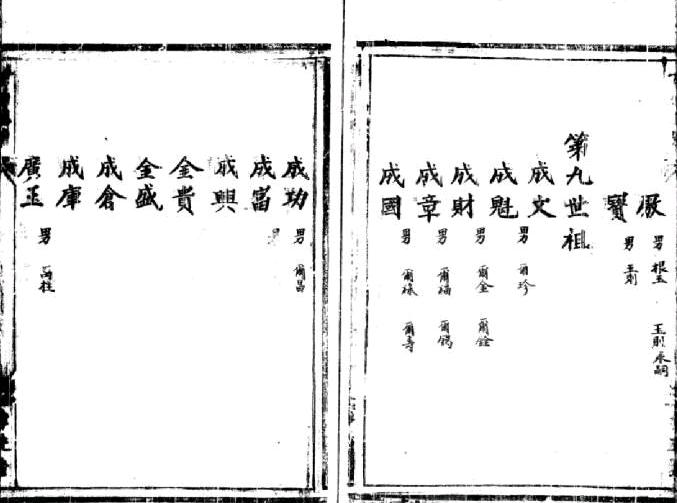 厥 男 根玉 玉則承嗣
寶 男 玉則
第九世祖
成文 男 爾珍
成魁
成財 男 爾金 爾銓
成章 男 爾福
成國 男 爾祿 爾壽
成功 男 爾昌
成富 男
成興
金貴
金盛
成倉
成庫
廣玉 男 萬柱